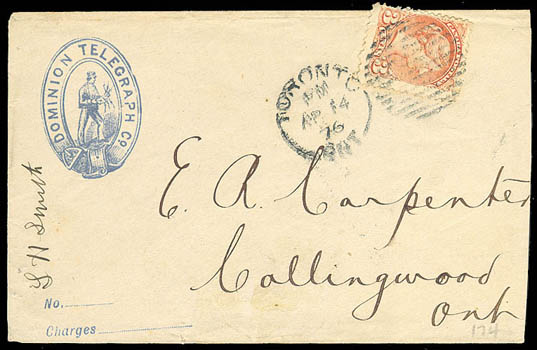 DOMINION TELEGRAPH Co
TORONTO
PM
AP 14
76
ONT
3 3
E. A. Carpenter
Collingwood
Ont
Smith
No.
Charges
174